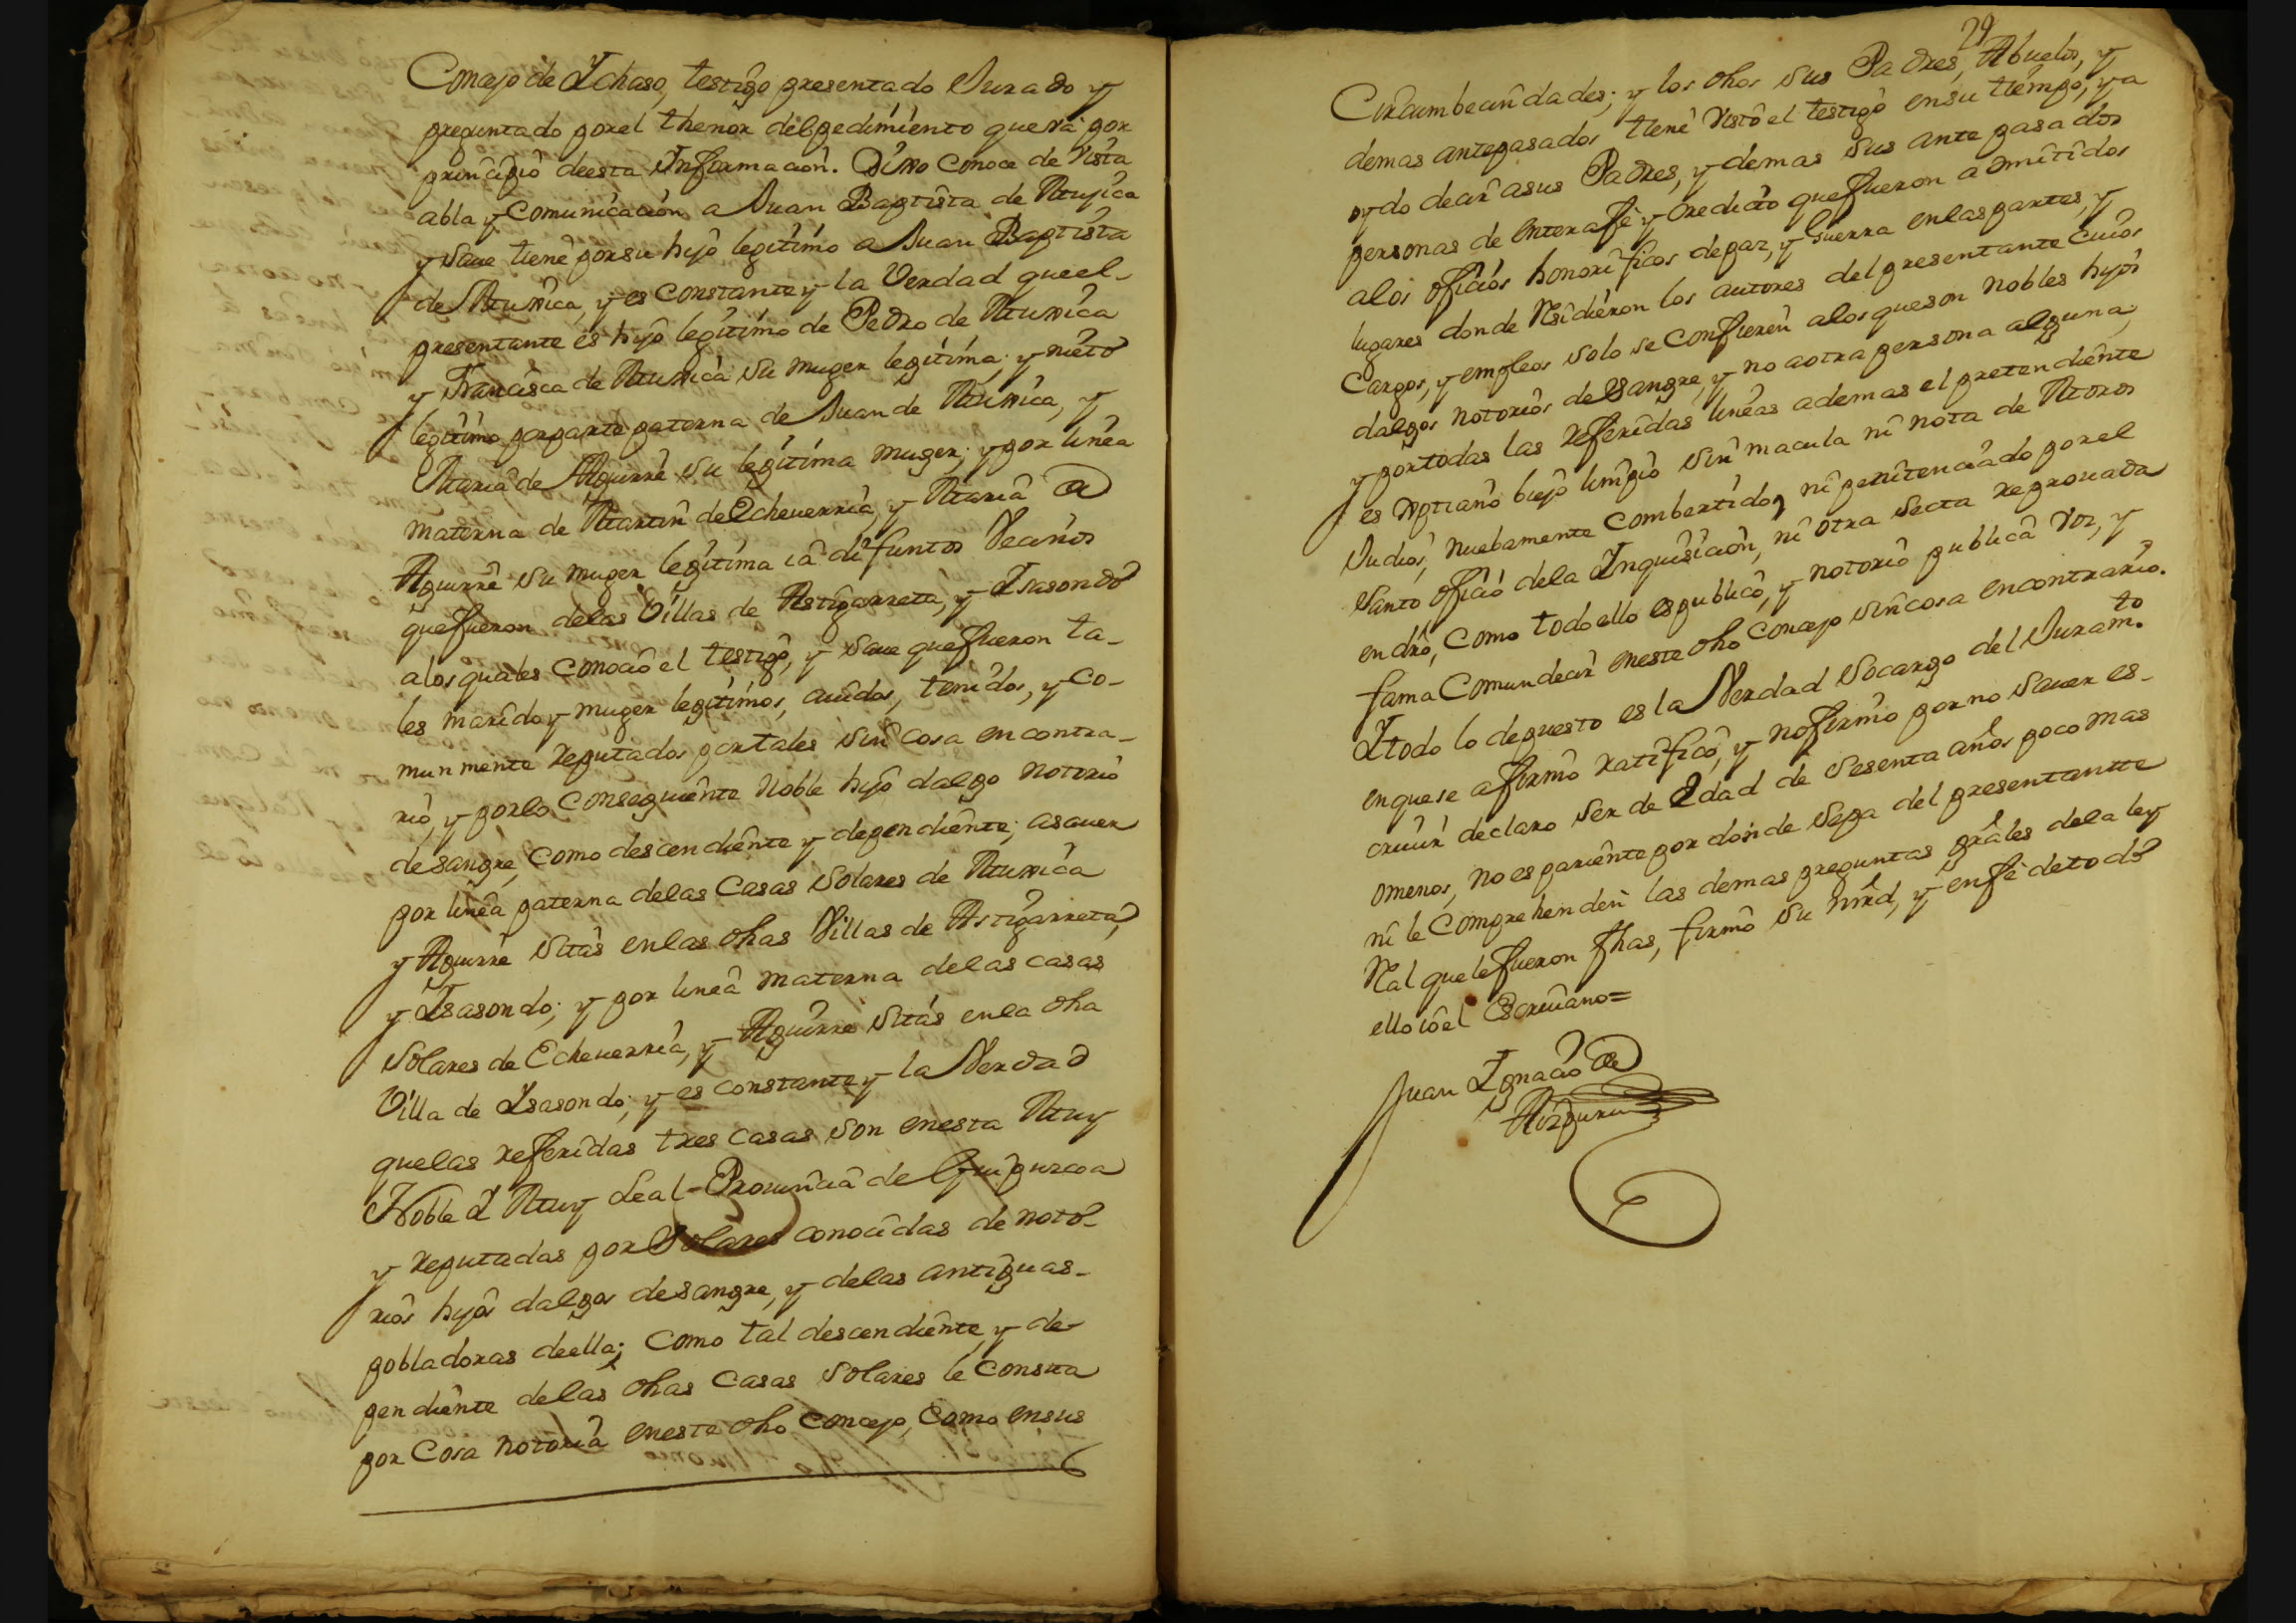 Concejo de Ichaso, testigo presentado Jurado y
preguntado por el thenor del pedimiento que va por
principio de esta Informacion. Dixo conoce de vista
abla y Comunicacion a Juan Baptista de Muxica
y save tiene por su hijo legitimo a Juan Baptista
de Muxica, y es Constante y la Verdad que el
presentante es hijo legitimo de Pedro de Muxica
y Francisca de Muxica su muger legitima; y nieto
legitimo por parte paterna de Juan de Muxica, y
Maria de Aguirre su legitima muger; y por linea
materna de Martin de Echeverria, y Maria de
Aguirre su muger legitima ia difuntos Vecinos
que fueron de las Villas de Astigarreta, y Isasondo
a los quales Conocio el testigo, y save que fueron ta-
les marido y muger legitimos, auidos, tenidos, y co-
mun mente reputados por tales sin cosa en contra-
rio, y por lo Conseguiente Noble hijo dalgo notorio
de sangre, Como descendiente y dependiente; asauer
por linea paterna de las Casas Solares de Muxica
y Aguirre sitas en las dhas Villas de Astigarreta,
y Isasondo; y por linea materna de las casas
Solares de Echeuerria, y Aguirre sitas en la dha
Villa de Isasondo; y es constante y la Verdad
que las referidas tres casas son en esta Muy
Noble I Muy Leal Prouincia de Guipuzcoa
y reputadas por Solares conocidas de noto-
rios hijos dalgos de sangre, y de las antiguas
pobladoras de ella; Como tal descendiente, y de-
pendiente de las dhas Casas Solares le Consta
por Cosa notoria en este dho Concejo, Como en sus
29
Circumbecindades; y los dhos sus Padres, Abuelos, y
demas antepasados tiene visto el testigo en su tiempo, y a
oydo decir a sus Padres, y demas sus ante pasados
personas de entera fe y credito que fueron admitidos
a los oficios honorificos de paz, y Guerra en las partes, y
lugares donde residieron los autores del presentante cuios
Cargos, y empleos solo se Confieren a los que son nobles hijos
dalgos notorios de Sangre, y no a otra persona alguna,
y por todas las referidas lineas ademas el pretendiente
es xptiano biejo limpio sin macula ni nota de Moros
Judios, nuebamente Combertidos, ni penitenciado por el
Santo Oficio de la Inquisicion, ni otra Secta reprouada
en dro, Como todo ello es publico, y notorio publica voz, y
fama Comun decir en este dho Concejo sin cosa en contrario.
I todo lo depuesto es la Verdad Socargo del Juramto
en que se afirmo ratifico, y no firmo por no sauer es-
criuir declaro ser de Edad de Sesenta años poco mas
o menos, no es pariente por donde sepa del presentantte
ni le Comprehenden las demas preguntas grales de la ley
Real que le fueron fhas, firmo su mrd, y en fe de todo
ello io el Escriuano=
Juan Ignacio de